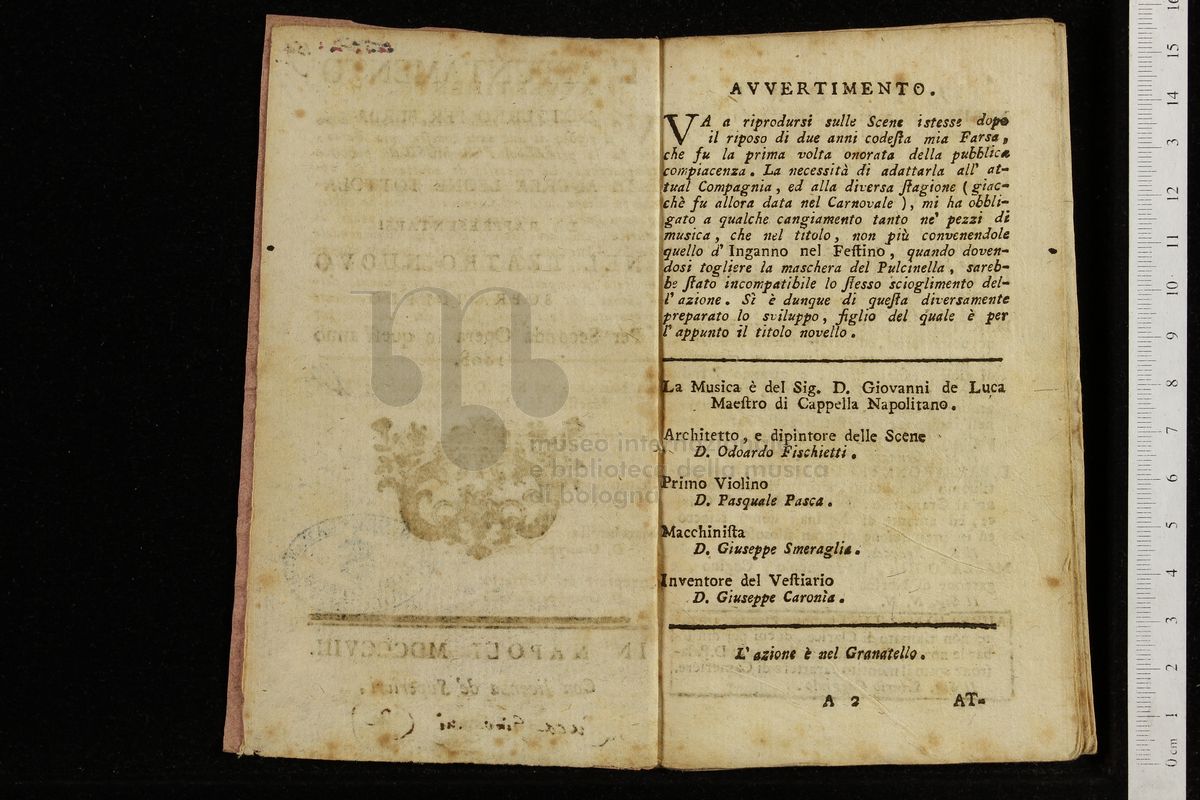 AVVERTIMENTO.
VA a riprodursi sulle Scene istesse dopo
il riposo di due anni codeſta mia Farsa,
che fu la prima volta onorata della pubblica
compiacenza. La necessità di adattarla all' at-
tual Compagnia, ed alla diversa ſtagione (giac-
chè fu allora data nel Carnovale), mi ha obbli-
gato a qualche cangiamento tanto ne' pezzi di
musica, che nel titolo, non più convenendole
quello d' Inganno nel Feſtino, quando doven-
dosi togliere la maschera del Pulcinella, sareb-
be ſtato incompatibile lo ſtesso scioglimento del-
l' azione. Sì è dunque di queſta diversamente
preparato lo sviluppo, figlio del quale è per
l' appunto il titolo novello.
La Musica è del Sig. D. Giovanni de Luca
Maeſtro di Cappella Napolitano.
Architetto, e dipintore delle Scene
D. Odoardo Fischietti.
Primo Violino
D. Pasquale Pasca.
Macchiniſta
D. Giuseppe Smeraglia.
Inventore del Veſtiario
D. Giuseppe Caronìa.
L' azione è nel Granatello.
A 2 AT-
museo internazionale
e biblioteca della musica
di bologna
IN NAPOLI MDCCCVIII.
0 cm 1 2 3 4 5 6 7 8 9 10 11 12 13 14 15 16